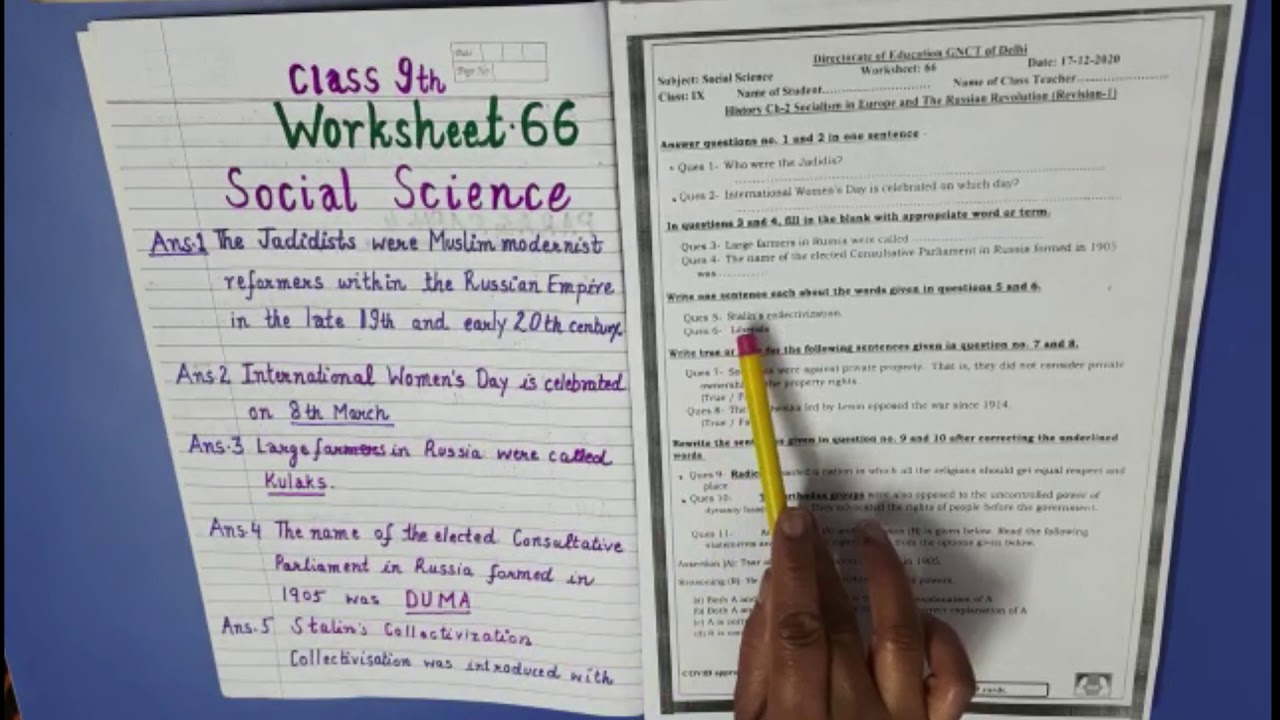 Date
Page No
Class 9th
Worksheet·66
Social Science
Ans.1 The Jadidists were Muslim modernist
reformers within the Russian Empire
in the late 19th and early 20th century
Ans.2 International Women's Day is celebrated
on 8th March
Ans.3 Large farmers in Russia were called
Kulaks.
Ans.4 The name of the elected Consultative
Parliament in Russia formed in
1905 was DUMA
Ans.5 Stalin's Collectivization
Collectivisation was introduced with
Directorate of Education GNCT of Delhi
Subject: Social Science Worksheet: 66 Date: 17-12-2020
Class: IX Name of Student Name of Class Teacher
History Ch-2 Socialism in Europe and The Russian Revolution (Revision-1)
Answer questions no. 1 and 2 in one sentence -
Ques 1- Who were the Jadidis?
Ques 2- International Women's Day is celebrated on which day?
In questions 3 and 4, fill in the blank with appropriate word or term.
Ques 3- Large farmers in Russia were called
Ques 4- The name of the elected Consultative Parliament in Russia formed in 1905
was
Write one sentence each about the words given in questions 5 and 6.
Ques 5- Stalin's collectivization
Ques 6-
Write true or for the following sentences given in question no. 7 and 8.
Ques 7- were against private property. That is, they did not consider private
the property rights
(True /
Ques 8- The led by Lenin opposed the war since 1914.
(True /
Rewrite the given in question no. 9 and 10 after correcting the underlined
words.
Ques 9- a nation in which all the religions should get equal respect and
place
Ques 10- groups were also opposed to the uncontrolled power of
dynasty They advocated the rights of people before the government.
Ques 11- (A) and (R) is given below. Read the following
statements from the options given below.
Assertion (A): Tsar in 1905.
Reasoning (R): He powers.
(a) Both A and explanation of A
(b) Both A and correct explanation of A
(c) A is
(d) R is
COVID